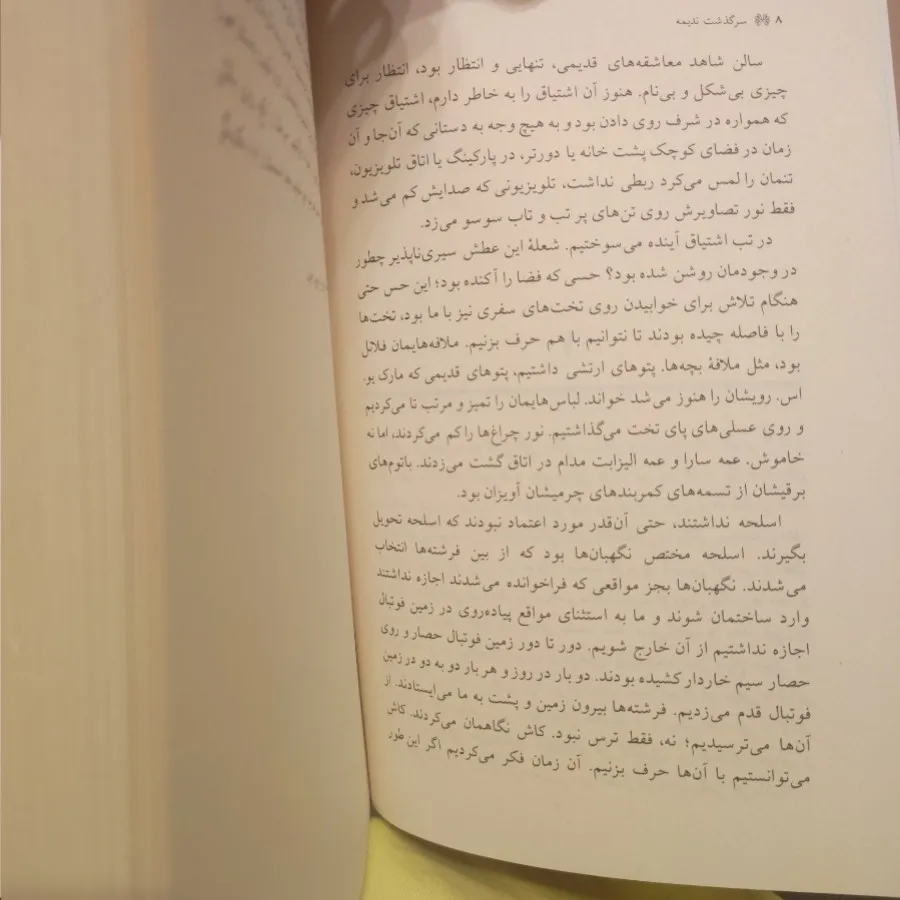 ۸ سرگذشت ندیمه
سالن شاهد معاشقه‌های قدیمی، تنهایی و انتظار بود، انتظار برای
چیزی بی‌شکل و بی‌نام. هنوز آن اشتیاق را به خاطر دارم، اشتیاق چیزی
که همواره در شرف روی دادن بود و به هیچ وجه به دستانی که آن‌جا و آن
زمان در فضای کوچک پشت خانه یا دورتر، در پارکینگ یا اتاق تلویزیون،
تنمان را لمس می‌کرد ربطی نداشت، تلویزیونی که صدایش کم می‌شد و
فقط نور تصاویرش روی تن‌های پر تب و تاب سوسو می‌زد.
در تب اشتیاق آینده می‌سوختیم. شعلهٔ این عطش سیری‌ناپذیر چطور
در وجودمان روشن شده بود؟ حسی که فضا را آکنده بود؛ این حس حتی
هنگام تلاش برای خوابیدن روی تخت‌های سفری نیز با ما بود، تخت‌ها
را با فاصله چیده بودند تا نتوانیم با هم حرف بزنیم. ملافه‌هایمان فلانل
بود، مثل ملافهٔ بچه‌ها. پتوهای ارتشی داشتیم، پتوهای قدیمی که مارک یو.
اس. رویشان را هنوز می‌شد خواند. لباس‌هایمان را تمیز و مرتب تا می‌کردیم
و روی عسلی‌های پای تخت می‌گذاشتیم. نور چراغ‌ها را کم می‌کردند، اما نه
خاموش. عمه سارا و عمه الیزابت مدام در اتاق گشت می‌زدند. باتوم‌های
برقیشان از تسمه‌های کمربندهای چرمیشان آویزان بود.
اسلحه نداشتند، حتی آن‌قدر مورد اعتماد نبودند که اسلحه تحویل
بگیرند. اسلحه مختص نگهبان‌ها بود که از بین فرشته‌ها انتخاب
می‌شدند. نگهبان‌ها بجز مواقعی که فراخوانده می‌شدند اجازه نداشتند
وارد ساختمان شوند و ما به استثنای مواقع پیاده‌روی در زمین فوتبال
اجازه نداشتیم از آن خارج شویم. دور تا دور زمین فوتبال حصار و روی
حصار سیم خاردار کشیده بودند. دو بار در روز و هر بار دو به دو در زمین
فوتبال قدم می‌زدیم. فرشته‌ها بیرون زمین و پشت به ما می‌ایستادند. از
آن‌ها می‌ترسیدیم؛ نه، فقط ترس نبود. کاش نگاهمان می‌کردند. کاش
می‌توانستیم با آن‌ها حرف بزنیم. آن زمان فکر می‌کردیم اگر این طور